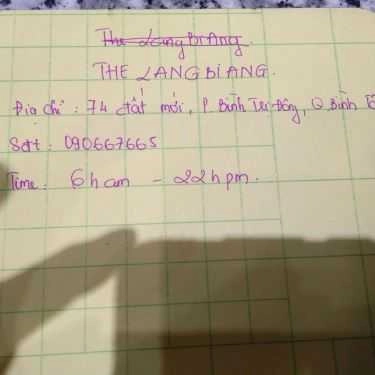 The LangBiAng.
THE LANGBIANG.
Địa chỉ : 74 đất mới, P. Bình Trị Đông, Q Bình
Sđt : 090667665
Time : 6h am - 22h pm.